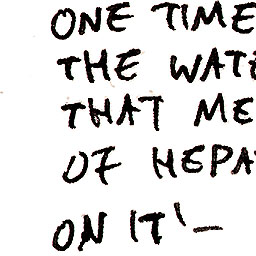 ONE TIME
THE WATE
THAT ME
OF HEPA
ON IT'—